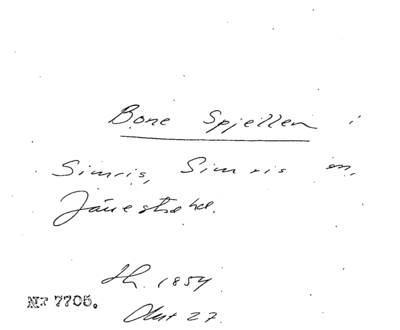 Bone Spjellen i
Simris, Simris sn,
Järrestad hd.
Sk. 1854
Akt 27.
NR 7705.